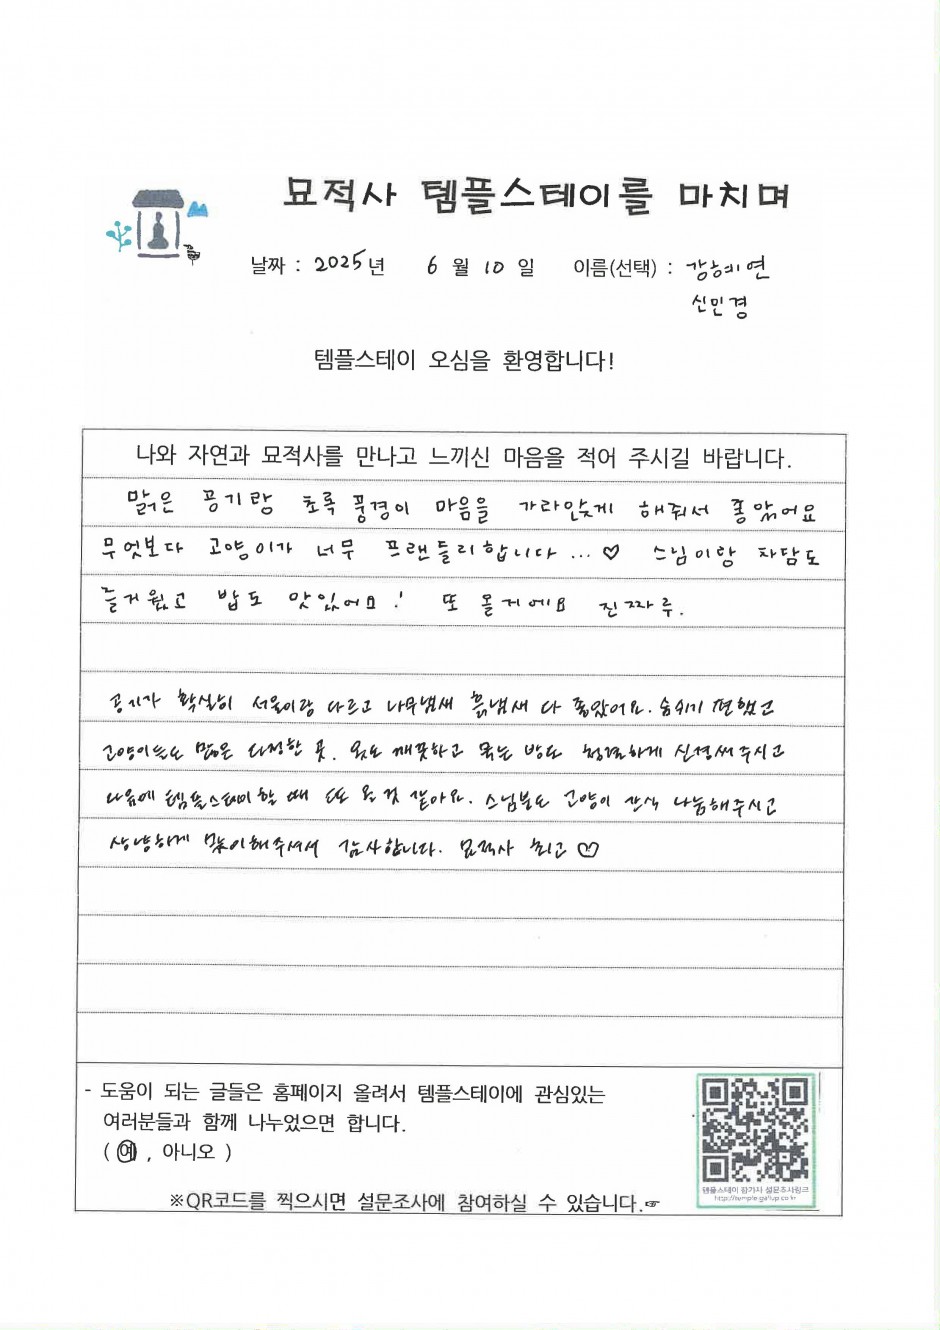 묘적사 템플스테이를 마치며
날짜 : 2025년 6 월 10 일 이름(선택) : 강혜연
신민경
템플스테이 오심을 환영합니다!
나와 자연과 묘적사를 만나고 느끼신 마음을 적어 주시길 바랍니다.
맑은 공기랑 초록 풍경이 마음을 가라앉게 해줘서 좋았어요
무엇보다 고양이가 너무 프랜들리합니다 ... ♡ 스님이랑 차담도
즐거웠고 밥도 맛있어요! 또 올거에요 진짜루.
공기가 확실히 서울이랑 다르고 나무냄새 흙냄새 다 좋았어요. 숨쉬기 편했고
고양이들도 많은 다정한 곳. 옷도 깨끗하고 묵는 방도 청결하게 신경써주시고
다음에 템플스테이할 때 또 올 것 같아요. 스님분도 고양이 간식 나눔해주시고
상냥하게 맞이해주셔서 감사합니다. 묘적사 최고 ♡
- 도움이 되는 글들은 홈페이지 올려서 템플스테이에 관심있는
여러분들과 함께 나누었으면 합니다.
( 예 , 아니오 )
템플스테이 참가자 설문조사링크
http://temple.gallup.co.kr
※QR코드를 찍으시면 설문조사에 참여하실 수 있습니다.☞